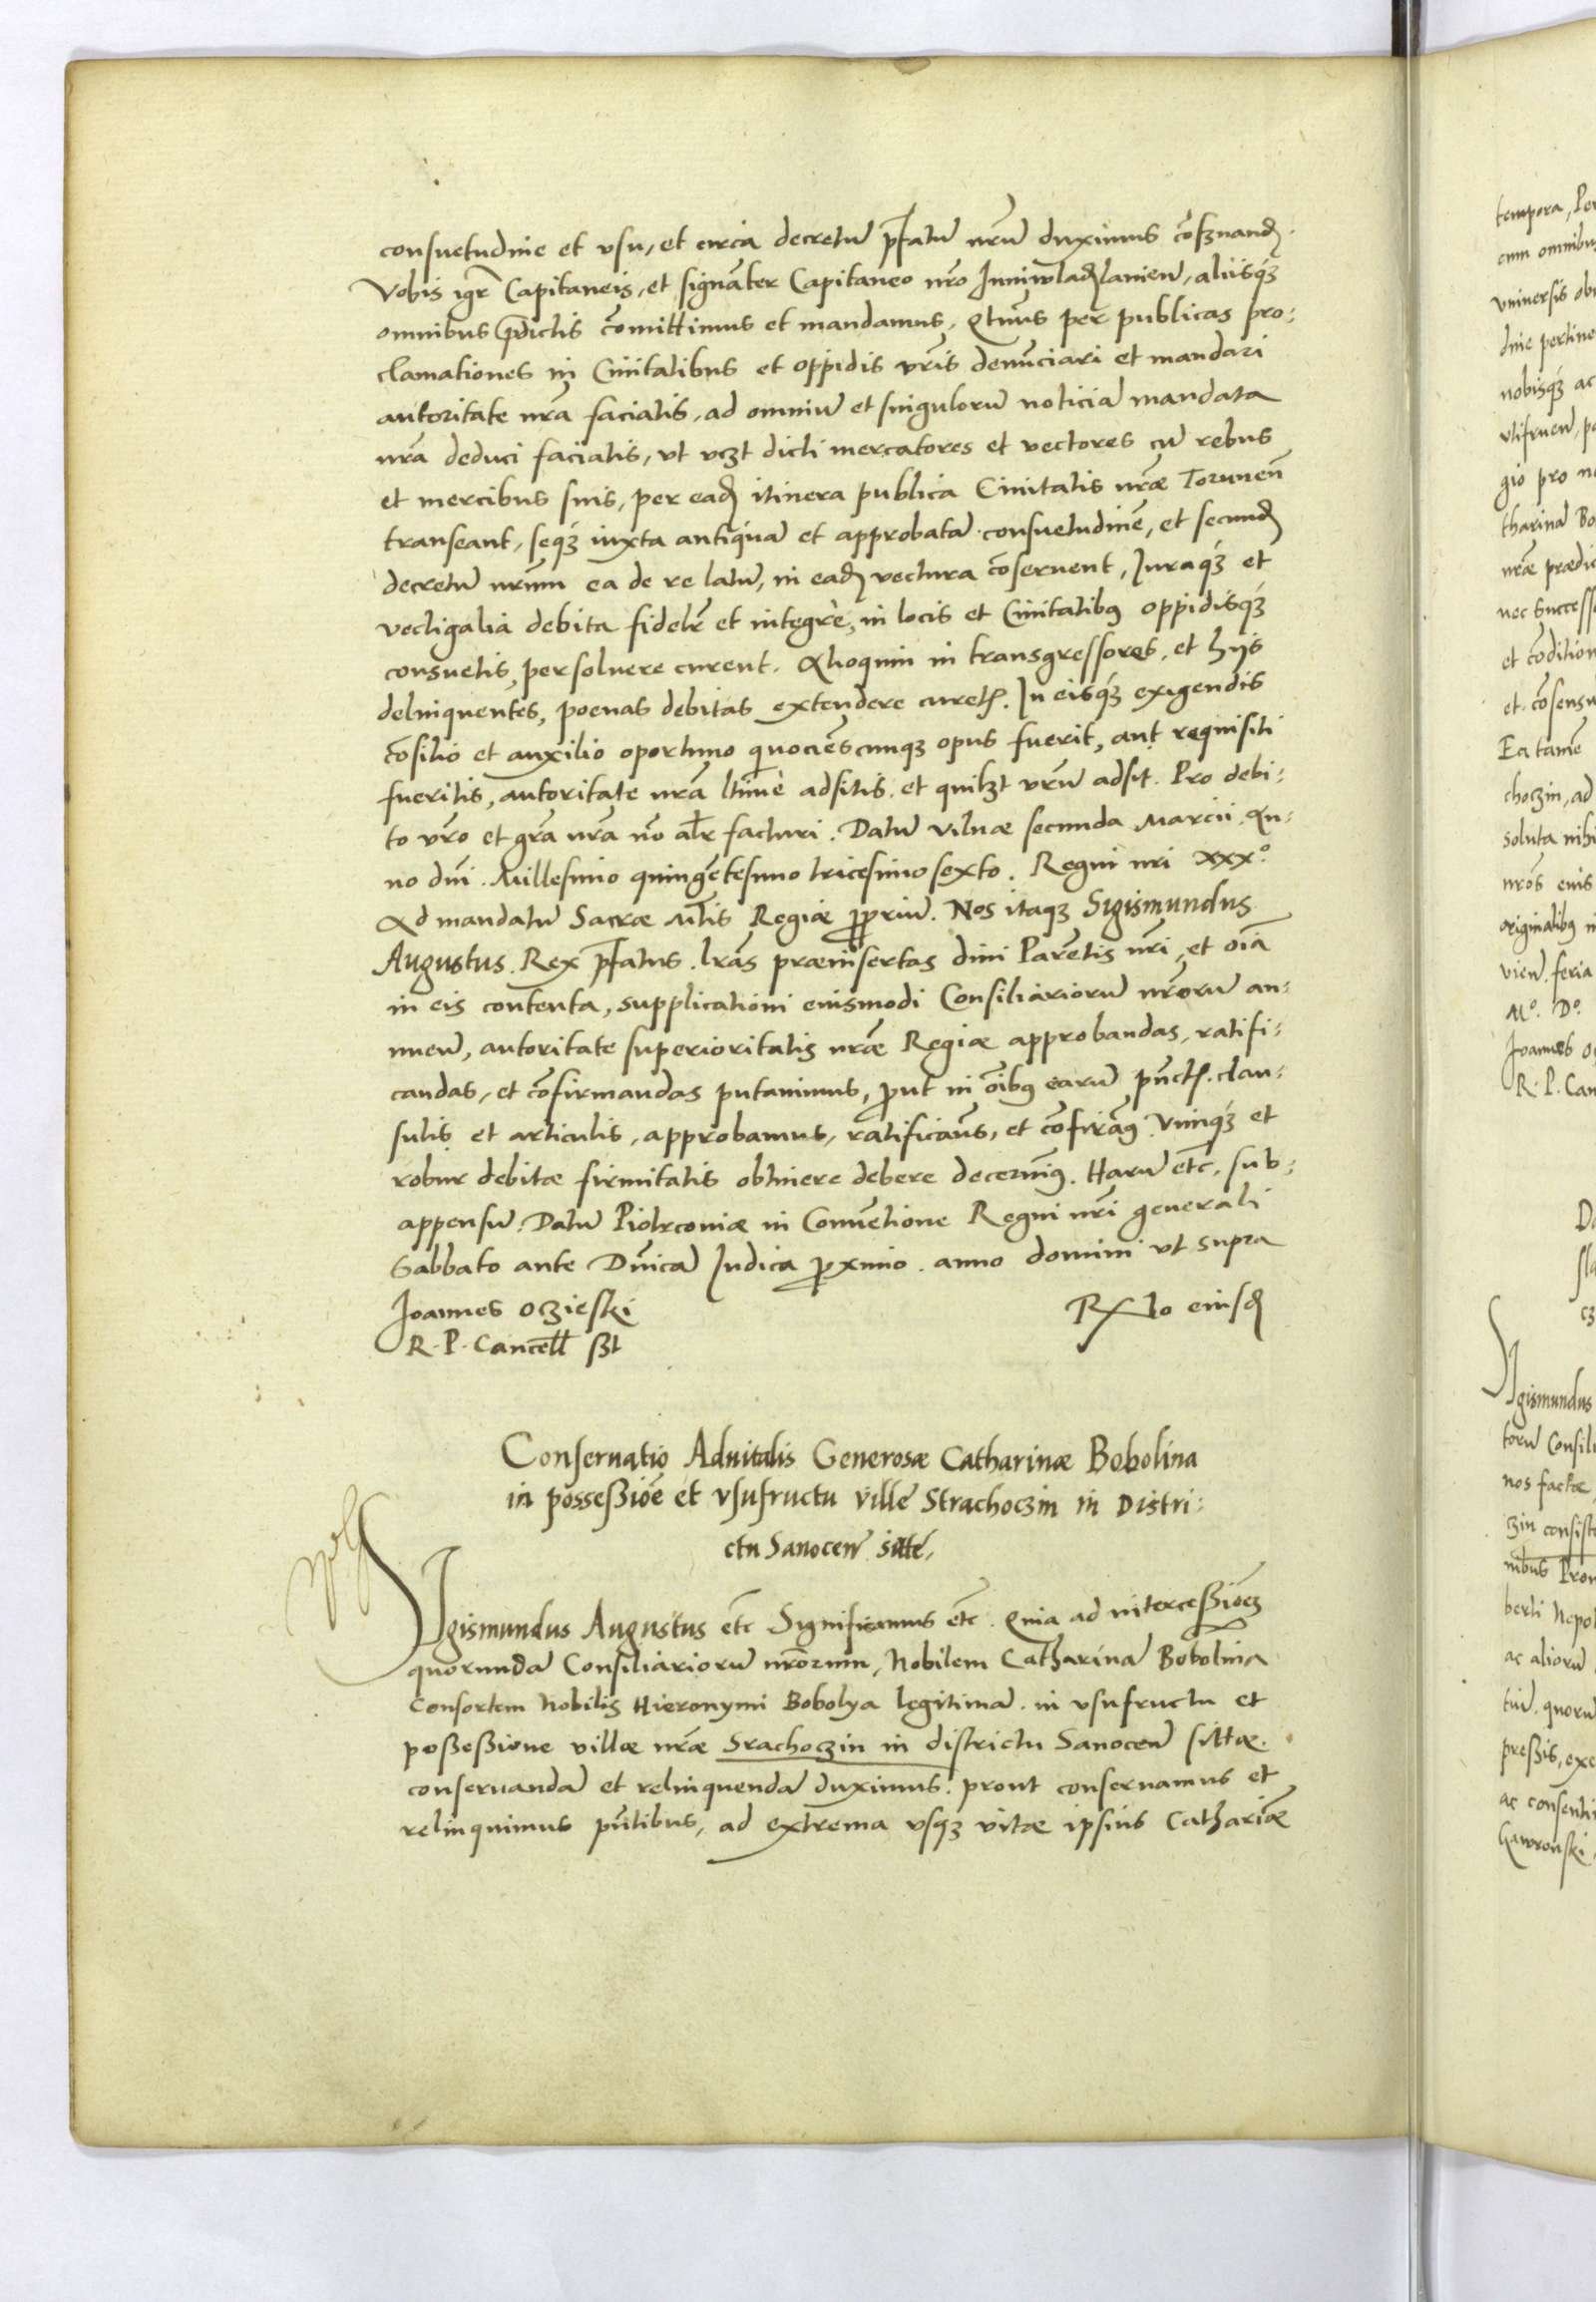 consuetudine et vsu, et circa decretũ p̃fatũ nr̃ũ duximus cõẞnand̨.
Vobis igr̃ Capitaneis, et signãter Capitaneo nr̃o Iuniwladȝlanieñ, aliisq́ꝫ
omnibus p̃dictis cõmittimus et mandamus, Qtnũs per publicas pro:
clamationes in Ciuitatibus et oppidis vr̃is denũciari et mandari
autoritate nr̃a faciatis, ad omniũ et singulorũ noticiã mandata
nr̃a deduci faciatis, vt vcȝt dicti mercatores et vectores cũ rebus
et mercibus suis, per ead̨ itinera publica Ciuitatis nr̃æ Toruneñ
transeant, seq́ꝫ iuxta antiquã et approbatã consuetudinẽ, et secund̨
decretũ nr̃um ea de re latũ, in ead̨ vectura cõseruent, Iuraq́ꝫ et
vectigalia debita fidelr̃ et integrè, in locis et Ciuitatibꝰ oppidisq́ꝫ
consuetis, persoluere curent. Alioquin in transgressores, et hijs
delinquentes, poenas debitas extendere curetꝭ. In eisq́ꝫ exigendis
cõsilio et auxilio oportuno quociẽscunqꝫ opus fuerit, aut requisiti
fueritis, autoritate nr̃a ltimè adsitis. et quilȝt vr̃ũ adsit. Pro debi:
to vr̃o et gr̃a nr̃a nõ alr̃ facturi. Datũ Vilnæ secunda Marcii An:
no dñi. Millesimo quingẽtesimo tricesimo sexto. Regni nr̃i xxx.º
Ad mandatũ Sacræ Mt̃is Regiæ ꝓpriũ. Nos itaqꝫ Sigismundus
Augustus. Rex p̃fatus. lr̃as præinsertas diui Parẽtis nr̃i, et oĩa
in eis contenta, supplicationi eiusmodi Consiliariorũ nr̃orũ an:
nueñ, autoritate superioritatis nr̃æ Regiæ approbandas, ratifi:
candas, et cõfirmandas putauimus, ꝓut in oĩbꝰ earũ pũctꝭ. clau:
sulis et articulis, approbamus, ratificam̃s, et cõfirãmꝰ. Vimq́ꝫ et
robur debitæ firmitatis obtinere debere decernĩꝰ. Harũ et̃c. sub:
appensũ. Datũ Piotrcouiæ in Conuẽtione Regni nr̃i generali
Sabbato ante Dñicã Iudica ꝓximo. anno domini vt supra
Joannes Oczieski
R. P. Cancell̃ ẞt
Rlo eiusd̨
Conseruatio Aduitalis Generosæ Catharinæ Bobolina
in possessiõe et vsufructu villę Strachoczin in Distri:
ctu Sanoceñ sittę.
Sigismundus Augustus et̃c Significamus et̃c. Quia ad intercessiõeȝ
quorundã Consiliariorũ nr̃orum, Nobilem Catharinã Bobolina
Consortem Nobilis Hieronymi Bobolya legitimã. in vsufructu et
possessione villæ nr̃æ Srachoczin in districtu Sanoceñ sittæ.
conseruandã et relinquendã duximus. prout conseruamus et
relinquimus pñtibus, ad extrema vsqꝫ vitæ ipsius Cathariñæ